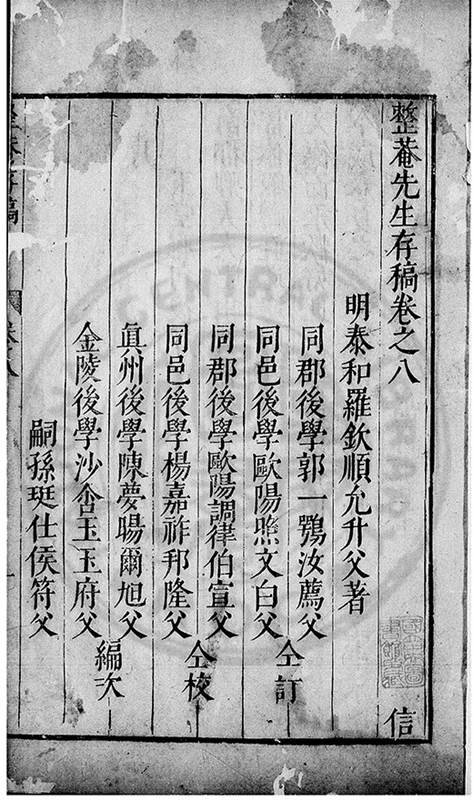 整菴先生存稿卷之八
信
明泰和羅欽順允升父著
同郡後學郭一鶚汝薦父
同邑後學歐陽照文白父
仝訂
同郡後學歐陽調律伯宣父
同邑後學楊嘉祚邦隆父
仝校
眞州後學陳夢暘爾旭父
金陵後學沙舍玉玉府父
編次
嗣孫珽仕侯符父